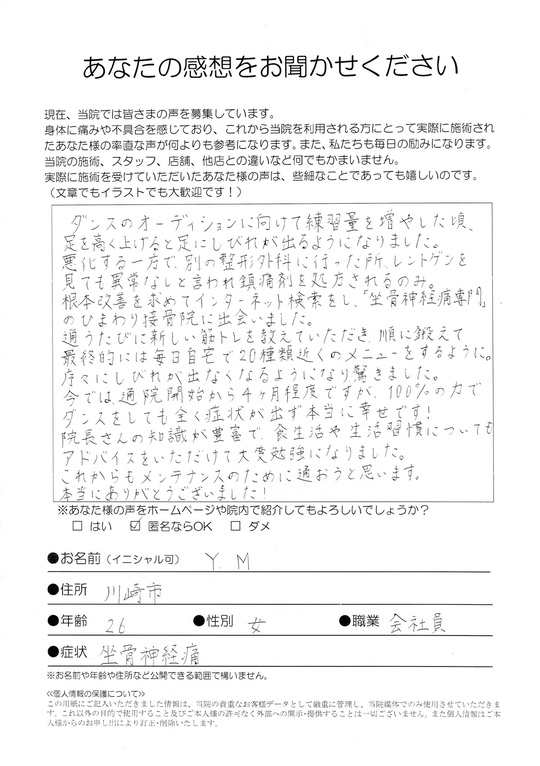 あなたの感想をお聞かせください
現在、当院では皆さまの声を募集しています。
身体に痛みや不具合を感じており、これから当院を利用される方にとって実際に施術され
たあなた様の率直な声が何よりも参考になります。また、私たちも毎日の励みになります。
当院の施術、スタッフ、店舗、他店との違いなど何でもかまいません。
実際に施術を受けていただいたあなた様の声は、些細なことであっても嬉しいのです。
(文章でもイラストでも大歓迎です!)
ダンスのオーディションに向けて練習量を増やした頃、
足を高く上げると足にしびれが出るようになりました。
悪化する一方で、別の整形外科に行った所、レントゲンを
見ても異常なしと言われ鎮痛剤を処方されるのみ。
根本改善を求めてインターネット検索をし、「坐骨神経痛専門」
のひまわり接骨院に出会いました。
通うたびに新しい筋トレを教えていただき、順に鍛えて
最終的には毎日自宅で20種類近くのメニューをするように。
序々にしびれが出なくなるようになり驚きました。
今では、通院開始から4ヶ月程度ですが、100%の力で
ダンスをしても全く症状が出ず本当に幸せです!
院長さんの知識が豊富で、食生活や生活習慣についても
アドバイスをいただけて大変勉強になりました。
これからもメンテナンスのために通おうと思います。
本当にありがとうございました!
※あなた様の声をホームページや院内で紹介してもよろしいでしょうか?
□ はい ☑ 匿名ならOK □ ダメ
●お名前(イニシャル可) Y.M
●住所 川崎市
●年齢 26 ●性別 女 ●職業 会社員
●症状 坐骨神経痛
※お名前や年齢や住所など公開できる範囲で構いません。
《個人情報の保護について》
この用紙にご記入いただきました情報は、当院の貴重なお客様データとして厳重に管理し、当院媒体でのみ使用させていただきま
す。これ以外の目的で使用すること及びご本人様の許可なく外部への開示・提供することは一切ございません。また個人情報はご本
人様からのお申し出により訂正・削除いたします。